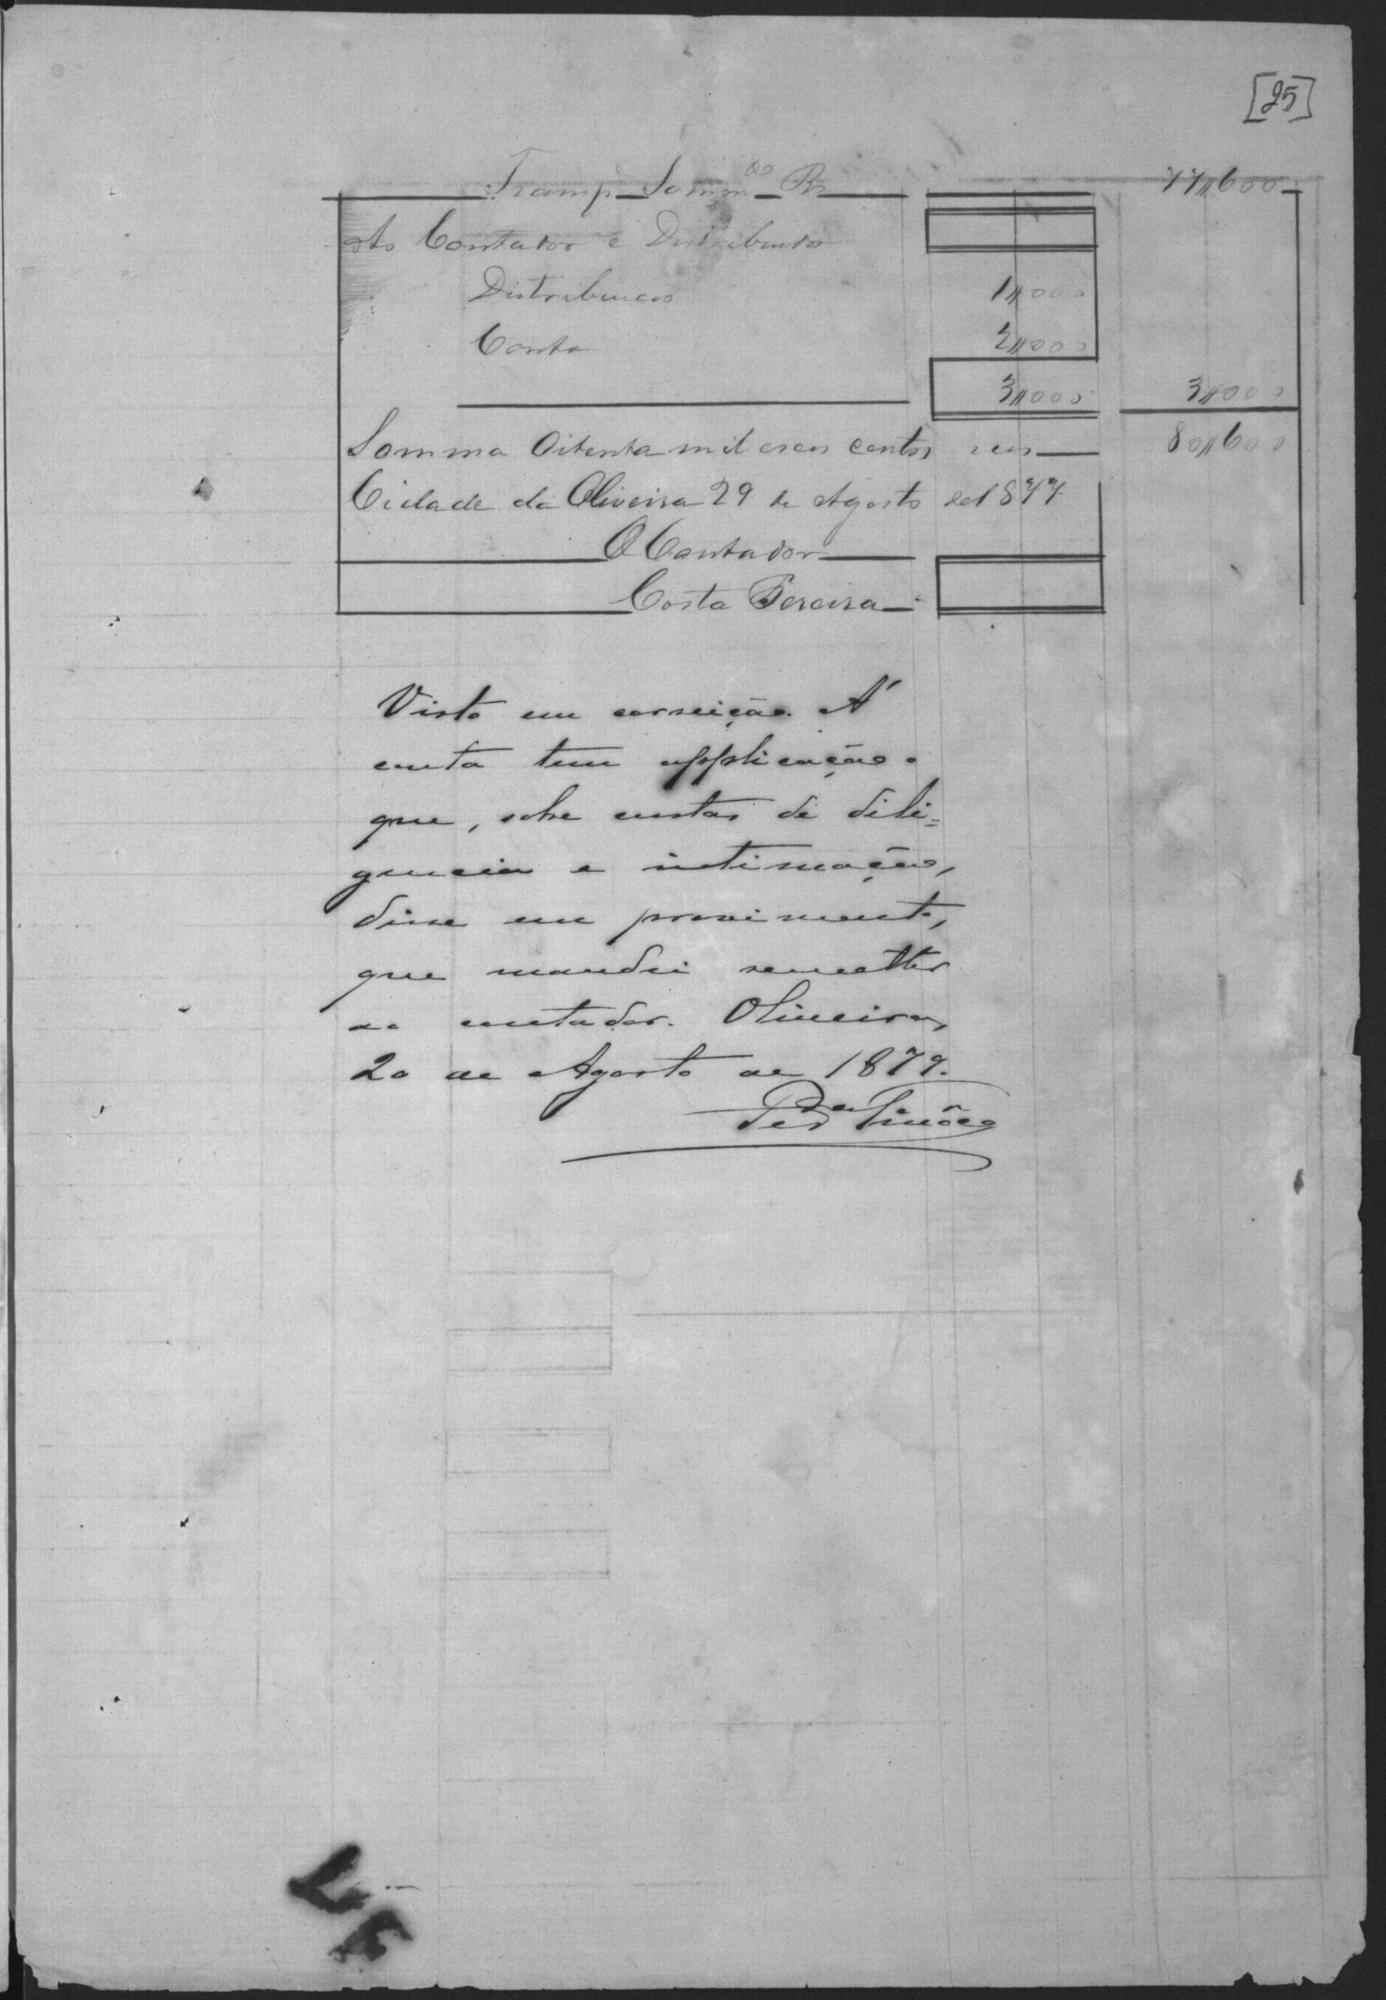 [25]
Transp. Somm.do Rs 77,,600
Ao Contador e Distribuidor
Distribuicão 1,,000
Conta 2,,000
3,,000 3,,000
Somma Oitenta mil e seis centos reis 80,,600
Cidade da Oliveira 29 de Agosto de 1877
O Contador
Costa Pereira
Visto em correição. A'
conta tem applicação o
que, sobre custas de dili=
gencia e intimação,
disse em provimento,
que mandei remetter
ao contador. Oliveira,
20 de Agosto de 1879.